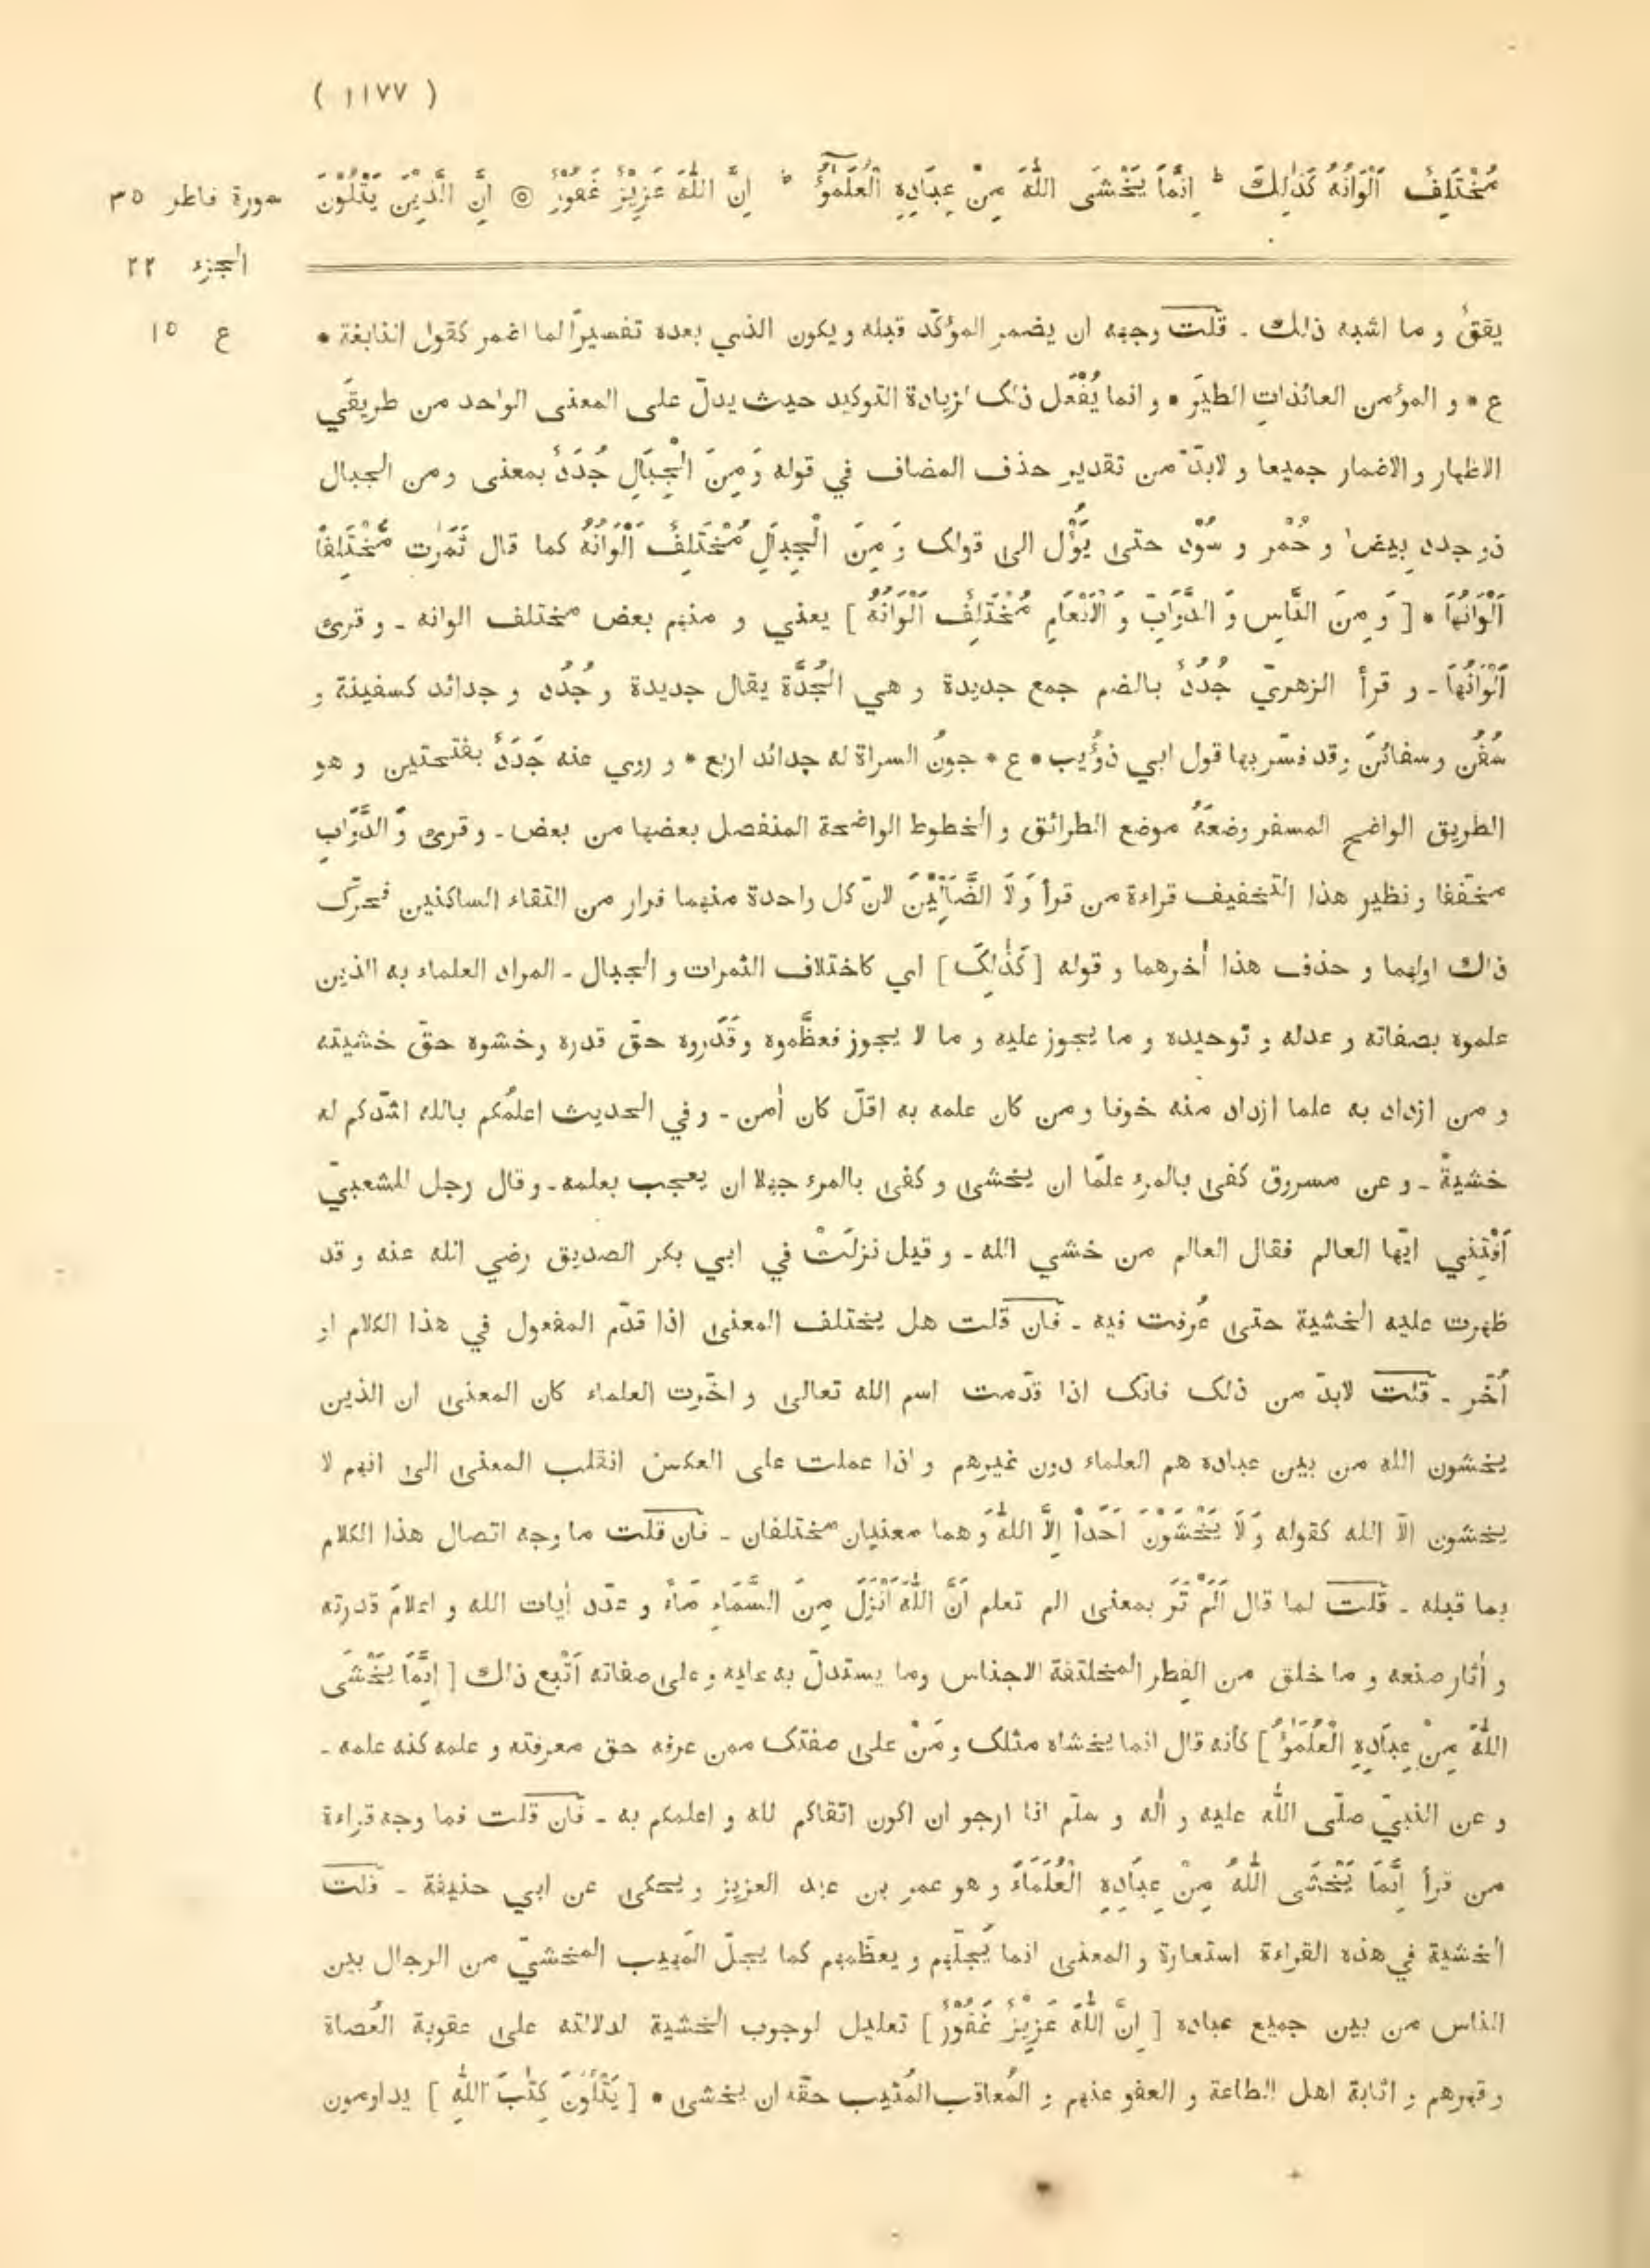 ( ١١٧٧ )
مُخْتَلِفٌ اَلْوَانُهُ كَذٰلِكَ ؕ اِنَّمَا يَخْشَى اللّٰهَ مِنْ عِبَادِهِ الْعُلَمٰٓؤُا ؕ اِنَّ اللّٰهَ عَزِيْزٌ غَفُوْرٌ ۞ اِنَّ الَّذِيْنَ يَتْلُوْنَ
سورة فاطر ٣٥
الجزء ٢٢
ع ١٥
يققٌ و ما اشبه ذلك ـ قلت وجهه ان يضمر المؤكّد قبله و يكون الذي بعده تفسيرًا لما اضمر كقول النابغة •
ع • و المؤمن العائذاتِ الطيرَ • و انما يُفْعَل ذلك لزيادة التوكيد حيث يدلّ على المعنى الواحد من طريقَي
الاظهار و الاضمار جميعا و لابدّ من تقدير حذف المضاف في قوله وَ مِنَ الْجِبَالِ جُدَدٌ بمعنى و من الجبال
ذو جدد بِيض و حُمْر و سُوْد حتى يَؤُل الى قولك وَ مِنَ الْجِبَالِ مُخْتَلِفٌ اَلْوَانُهُ كما قال ثَمَرٰتٍ مُّخْتَلِفًا
اَلْوَانُهَا • [ وَ مِنَ النَّاسِ وَ الدَّوَابِّ وَ الْاَنْعَامِ مُخْتَلِفٌ اَلْوَانُهُ ] يعني و منهم بعض مختلف الوانه ـ و قرئ
اَلْوَانُهَا ـ و قرأ الزهريّ جُدُدٌ بالضم جمع جديدة و هي الجُدَّة يقال جديدة و جُدُد و جدائد كسفينة و
سُفُن و سفائن و قد فسّر بها قول ابي ذؤيب • ع • جونُ السراة له جدائد اربع • و روي عنه جَدَدٌ بفتحتين و هو
الطريق الواضح المسفر وضعَهُ موضع الطرائق و الخطوط الواضحة المنفصل بعضها من بعض ـ و قرئ وَ الدَّوَابِ
مخفّفا و نظير هذا التخفيف قراءة من قرأ وَ لَا الضَّاَلِّيْنَ لانّ كل واحدة منهما فرار من التقاء الساكنين فحرّك
ذاك اولهما و حذف هذا اٰخرهما و قوله [ كَذٰلِكَ ] اي كاختلاف الثمرات و الجبال ـ المراد العلماء به الذين
علموه بصفاته و عدله و توحيده و ما يجوز عليه و ما لا يجوز فعظّموه و قَدّروه حقّ قدره و خشوه حقّ خشيته
و من ازداد به علما ازداد منه خوفا و من كان علمه به اقلّ كان اٰمن ـ و في الحديث اعلمُكم بالله اشدّكم له
خشيةً ـ و عن مسروق كفى بالمرء علمًا ان يخشى و كفى بالمرء جهلا ان يعجب بعلمه ـ و قال رجل للشعبيّ
اَفْتِنِي ايّها العالم فقال العالم من خشي الله ـ و قيل نزلَتْ في ابي بكر الصديق رضي الله عنه و قد
ظهرت عليه الخشية حتى عُرفت فيه ـ فان قلت هل يختلف المعنى اذا قدّم المفعول في هذا الكلام او
اُخّر ـ قلت لابدّ من ذلك فانّك اذا قدّمت اسم الله تعالى و اخّرت العلماء كان المعنى ان الذين
يخشون الله من بين عباده هم العلماء دون غيرهم و اذا عملت على العكس انقلب المعنى الى انهم لا
يخشون الّا الله كقوله وَ لَا يَخْشَوْنَ اَحَدًا اِلَّا اللّٰهَ و هما معنيان مختلفان ـ فان قلت ما وجه اتصال هذا الكلام
بما قبله ـ قلت لما قال اَلَمْ تَرَ بمعنى الم تعلم اَنَّ اللّٰهَ اَنْزَلَ مِنَ السَّمَاءِ مَاءً و عدّد اٰيات الله و اعلامَ قدرته
و اٰثار صنعه و ما خلق من الفِطر المختلفة الاجناس وما يستدلّ به عليه و على صفاته اَتْبع ذلك [ اِنَّمَا يَخْشَى
اللّٰهَ مِنْ عِبَادِهِ الْعُلَمٰؤُا ] كأنه قال انما يخشاه مثلك و مَنْ على صفتك ممن عرفه حق معرفته و علمه كنه علمه ـ
و عن النبيّ صلّى اللّٰه عليه و اٰله و سلّم انا ارجو ان اكون اتقاكم لله و اعلمكم به ـ فان قلت فما وجه قراءة
من قرأ اِنَّمَا يَخْشَى اللّٰهُ مِنْ عِبَادِهِ الْعُلَمَاءَ و هو عمر بن عبد العزيز و يحكى عن ابي حنيفة ـ قلت
الخشية في هذه القراءة استعارة و المعنى انما يُجلّهم و يعظّمهم كما يجلّ المَهيب المخشيّ من الرجال بين
الناس من بين جميع عباده [ اِنَّ اللّٰهَ عَزِيْزٌ غَفُوْرٌ ] تعليل لوجوب الخشية لدلالته على عقوبة العُصاة
و قهرهم و اثابة اهل الطاعة و العفو عنهم و المُعاقِب المُثيب حقّه ان يخشى • [ يَتْلُوْنَ كِتٰبَ اللّٰهِ ] يداومون